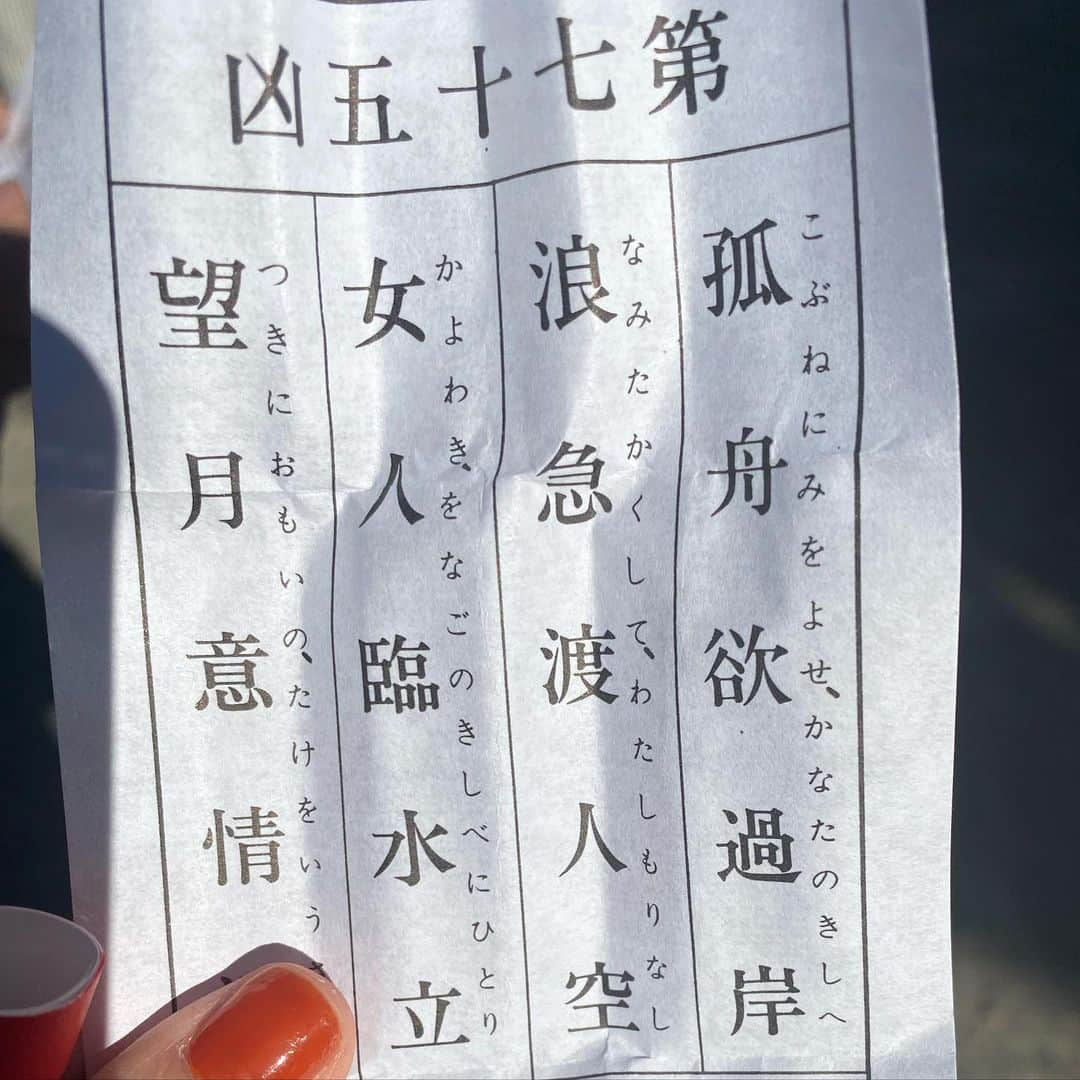 第七十五凶
孤舟欲過岸
こぶねにみをよせ、かなたのきしへ
浪急渡人空
なみたかくして、わたしもりなし
女人臨水立
かよわき、をなごのきしべにひとり
望月意情
つきにおもいの、たけをいう